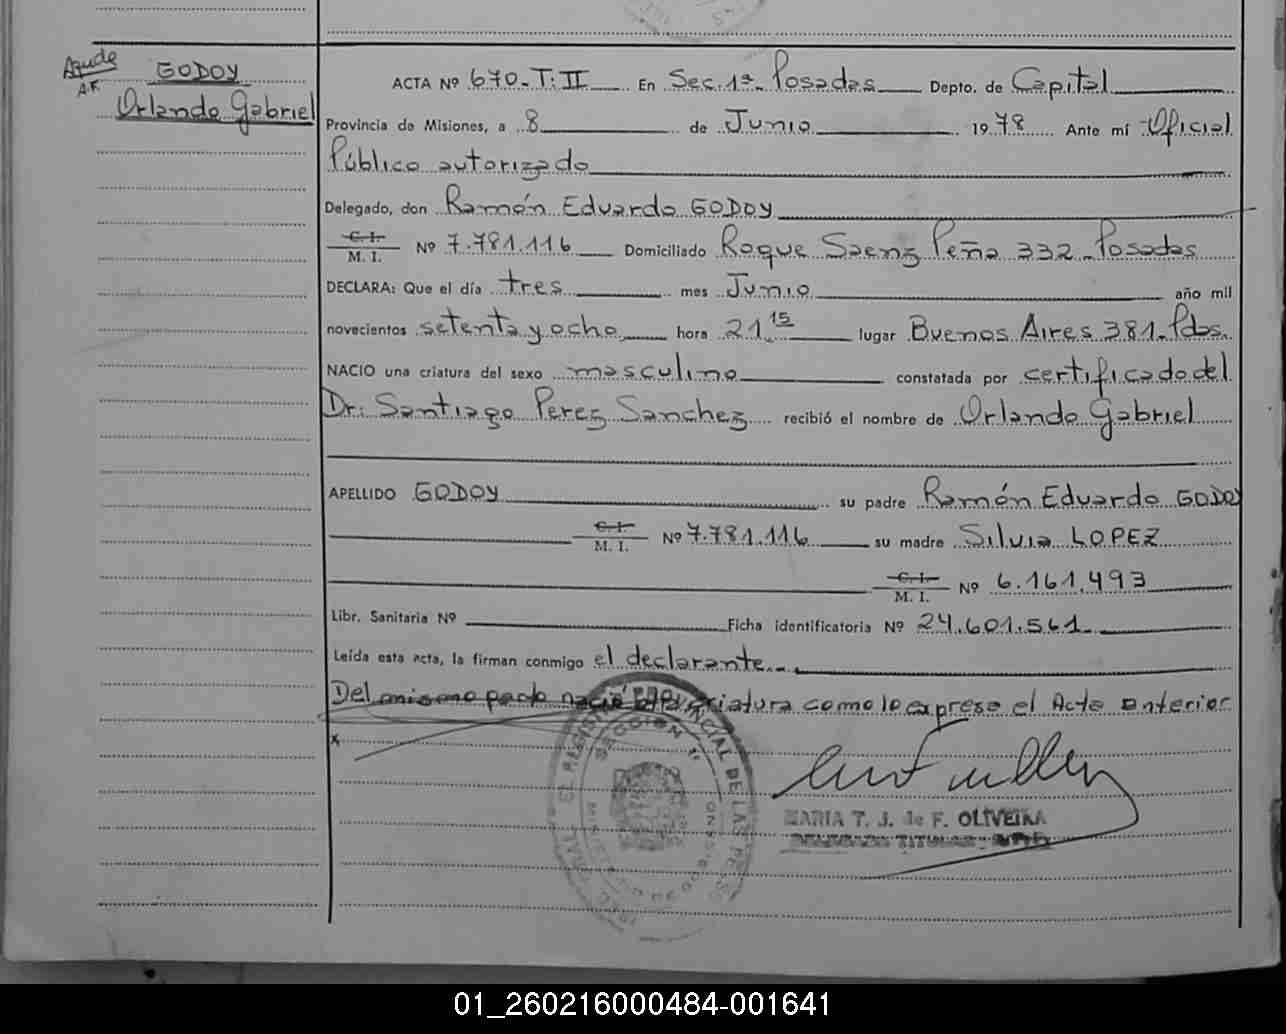 GODOY
Orlando Gabriel
ACTA Nº 670-T:II En Sec. 1ª Posadas Depto. de Capital
Provincia de Misiones, a 8 de Junio 1978 Ante mí Oficial
Público autorizado
Delegado, don Ramón Eduardo GODOY
C. I.
M. I. Nº 7.781.116 Domiciliado Roque Saenz Peña 332- Posadas
DECLARA: Que el día tres mes Junio año mil
novecientos setenta y ocho hora 21.15 lugar Buenos Aires 381- Pdas.
NACIO una criatura del sexo masculino constatada por certificado del
Dr. Santiago Perez Sanchez recibió el nombre de Orlando Gabriel
APELLIDO GODOY su padre Ramón Eduardo GODOY
C. I.
M. I. Nº 7.781.116 su madre Silvia LOPEZ
C. I.
M. I. Nº 6.161.493
Libr. Sanitaria Nº Ficha identificatoria Nº 24.601.561
Leída esta acta, la firman conmigo el declarante
Del mismo parto nació otra criatura como lo expresa el Acta anterior
x
SECCION 1ª
MARIA T. J. de F. OLIVEIRA
DELEGADO TITULAR
01_260216000484-001641